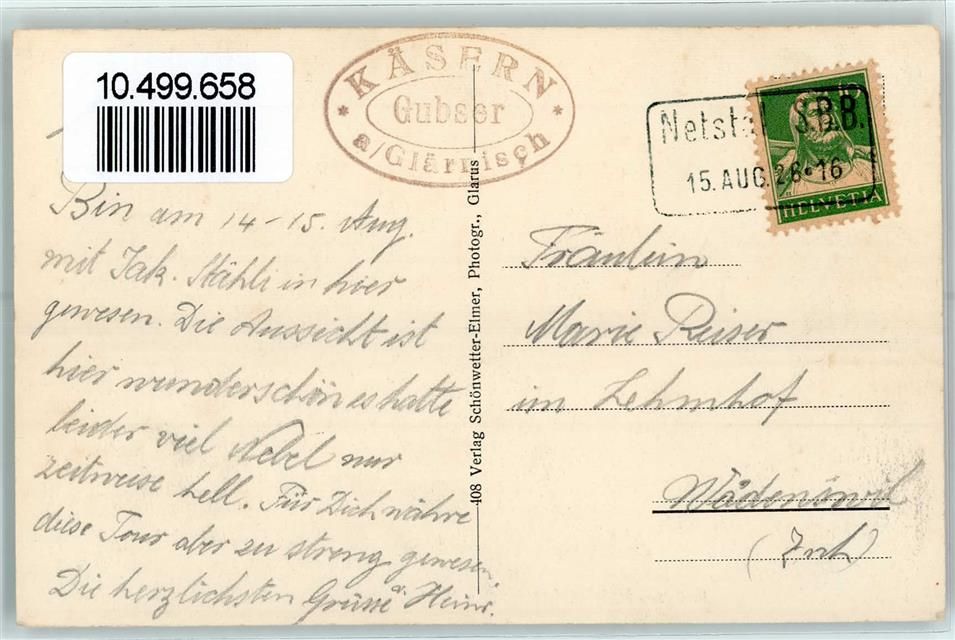 10.499.658
KÄSERN
Gubser
a/Glärnisch
Netstal S.B.B.
15.AUG.28-16
HELVETIA
Bin am 14-15. Aug.
mit Jak. Stähli in hier
gewesen. Die Aussicht ist
hier wunderschön es hatte
leider viel Nebel nur
zeitweise hell. Für Dich währe
diese Tour aber zu streng gewesen.
Die herzlichsten Grüsse a. Heinr.
408 Verlag Schönwetter-Elmer, Photogr., Glarus
Fräulein
Marie Reiser
im Lehmhof
Wädenswil